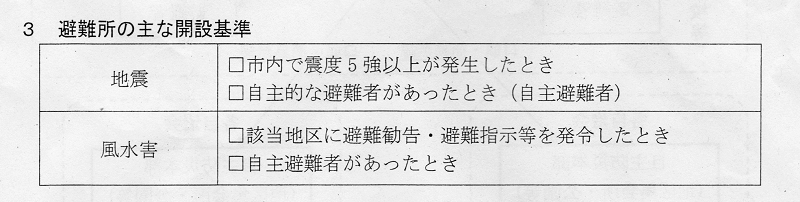 3 避難所の主な開設基準
地震
□市内で震度5強以上が発生したとき
□自主的な避難者があったとき（自主避難者）
風水害
□該当地区に避難勧告・避難指示等を発令したとき
□自主避難者があったとき